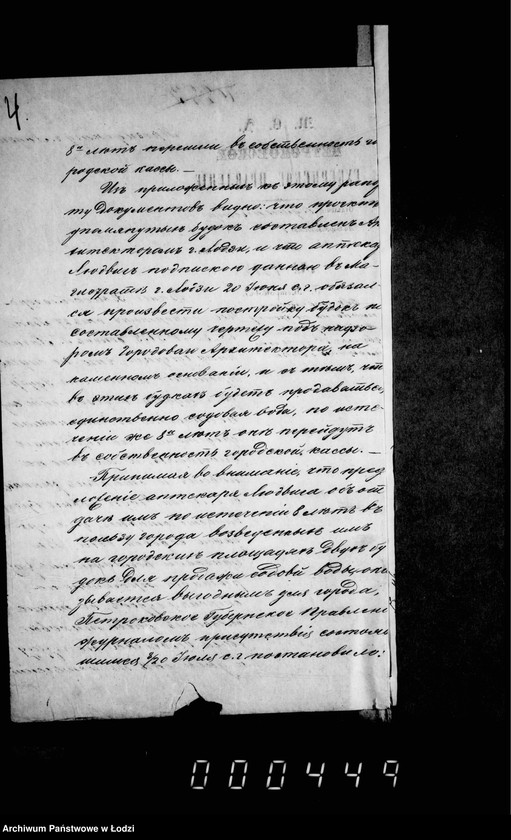 4.
8ми лѣтъ перешли въ собственность го
родской кассы. —
Изъ приложенныхъ къ этому рапор
ту документовъ видно: что проектъ
упомянутыхъ будокъ составленъ Ар
хитекторомъ г. Лодзи, и что аптекарь
Людвигъ подпискою данною въ Ма-
гистратѣ г. Лодзи 20 Іюня с.г. обязал
ся произвести постройку будокъ по
составленному чертежу подъ надзо
ромъ Городоваго Архитектора, на
каменномъ основаніи, и съ тѣмъ, что
въ этихъ будкахъ будетъ продаваться
единственно содовая вода, по исте
ченіи же 8ми лѣтъ онѣ перейдутъ
въ собственность городской кассы. —
Принимая во вниманіе, что пред
ложеніе аптекаря Людвига объ от
дачѣ имъ по истеченіи 8 лѣтъ въ
пользу города возведенныхъ имъ
на городскихъ площадяхъ двухъ бу
докъ для продажи содовой воды ока
зывается выгоднымъ для города,
Петроковское Губернское Правленіе
журналомъ присутствія состояв
шимся 8/20 Іюля с.г. постановило:
000449
Archiwum Państwowe w Łodzi